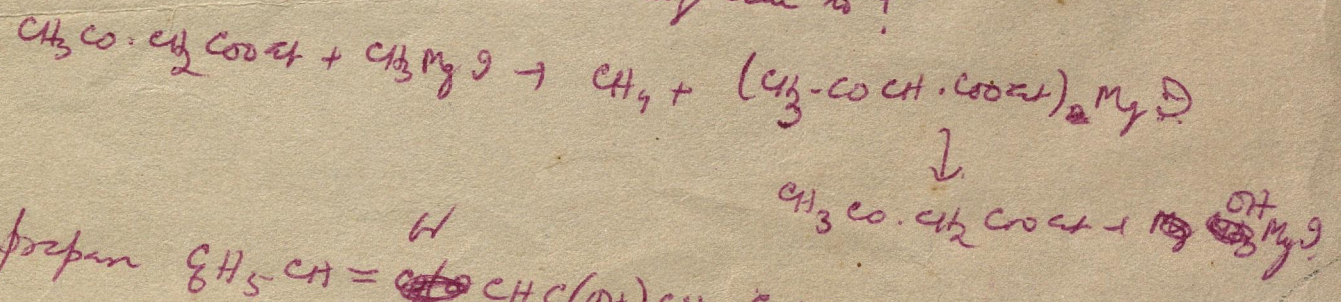 CH3CO.CH2COOEt + CH3MgI → CH4 + (CH3-COCH.COOEt)2MgI
↓
CH3CO.CH2COOEt + OHMgI
prepare C6H5CH = CHC(OH)